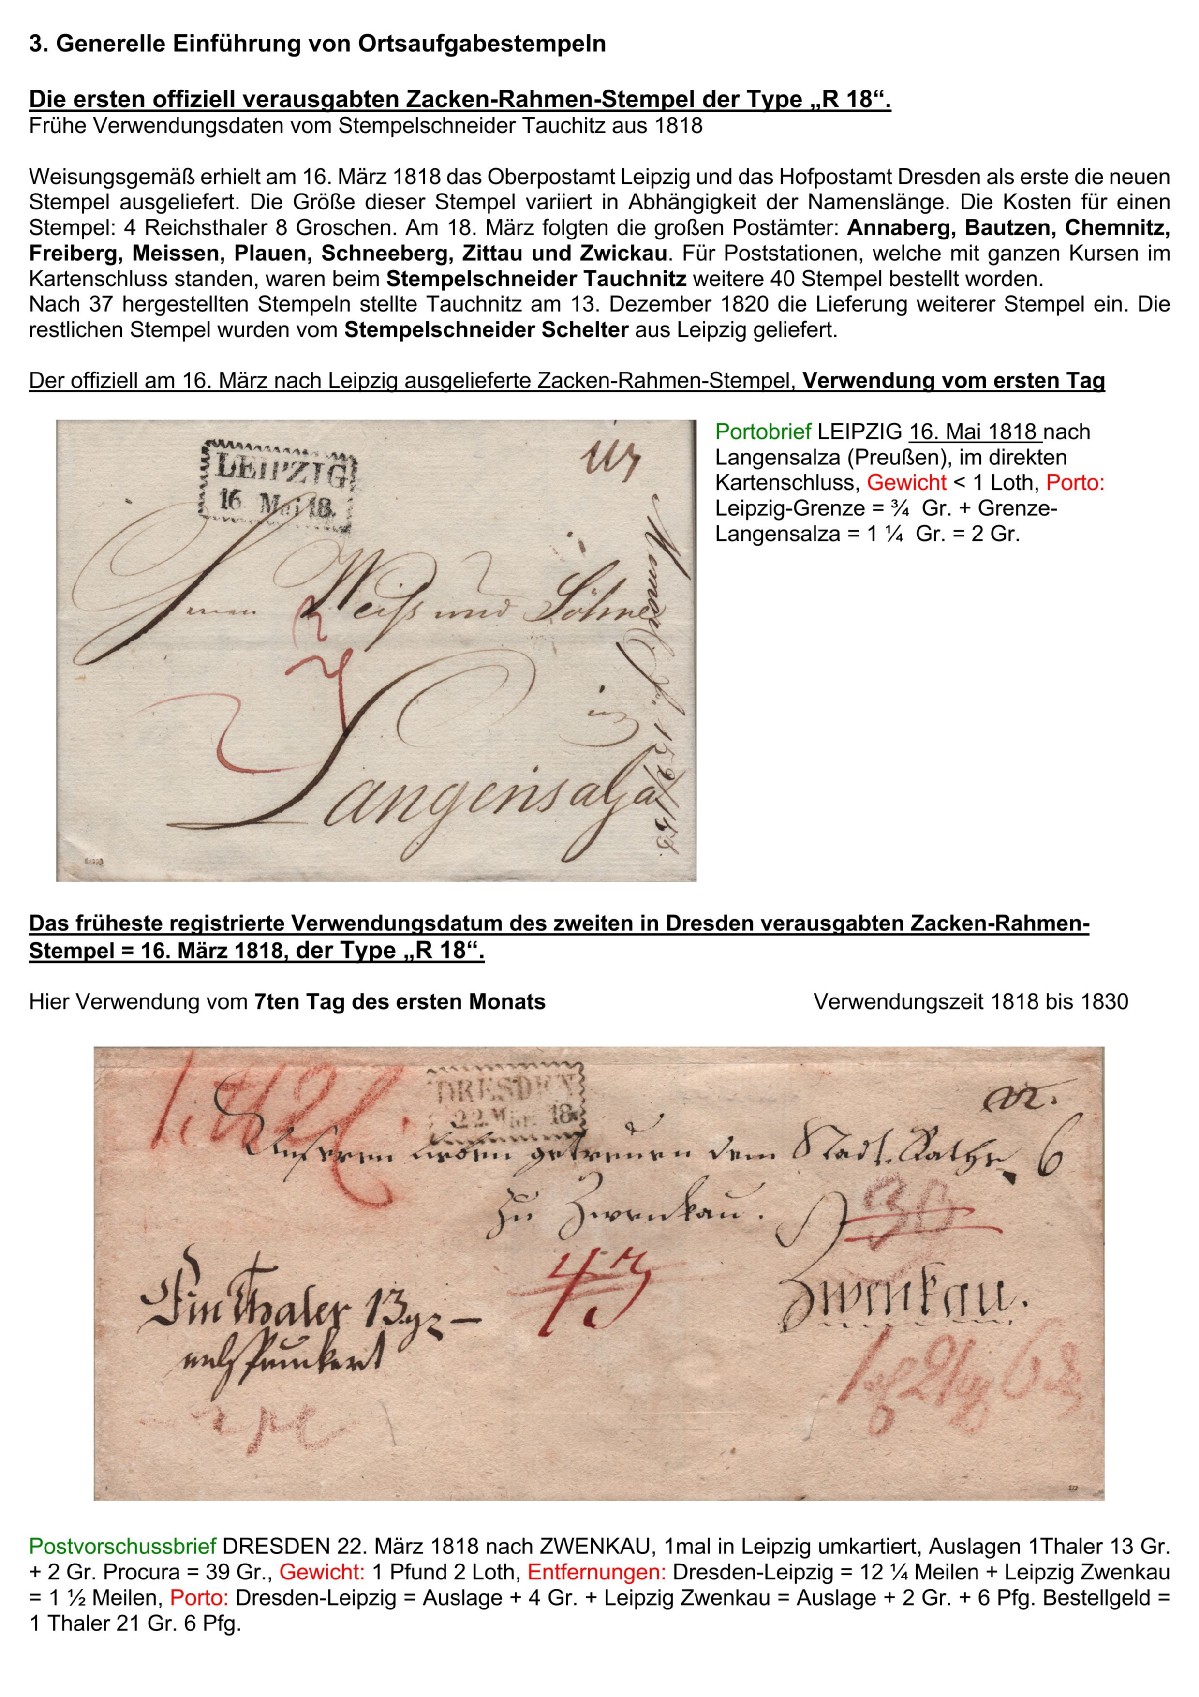 3. Generelle Einführung von Ortsaufgabestempeln
Die ersten offiziell verausgabten Zacken-Rahmen-Stempel der Type „R 18“.
Frühe Verwendungsdaten vom Stempelschneider Tauchitz aus 1818
Weisungsgemäß erhielt am 16. März 1818 das Oberpostamt Leipzig und das Hofpostamt Dresden als erste die neuen
Stempel ausgeliefert. Die Größe dieser Stempel variiert in Abhängigkeit der Namenslänge. Die Kosten für einen
Stempel: 4 Reichsthaler 8 Groschen. Am 18. März folgten die großen Postämter: Annaberg, Bautzen, Chemnitz,
Freiberg, Meissen, Plauen, Schneeberg, Zittau und Zwickau. Für Poststationen, welche mit ganzen Kursen im
Kartenschluss standen, waren beim Stempelschneider Tauchnitz weitere 40 Stempel bestellt worden.
Nach 37 hergestellten Stempeln stellte Tauchnitz am 13. Dezember 1820 die Lieferung weiterer Stempel ein. Die
restlichen Stempel wurden vom Stempelschneider Schelter aus Leipzig geliefert.
Der offiziell am 16. März nach Leipzig ausgelieferte Zacken-Rahmen-Stempel, Verwendung vom ersten Tag
LEIPZIG
16 Mai 18.
Weiß und Söhne
in
Langensalza
Portobrief LEIPZIG 16. Mai 1818 nach
Langensalza (Preußen), im direkten
Kartenschluss, Gewicht < 1 Loth, Porto:
Leipzig-Grenze = ¾ Gr. + Grenze-
Langensalza = 1 ¼ Gr. = 2 Gr.
Das früheste registrierte Verwendungsdatum des zweiten in Dresden verausgabten Zacken-Rahmen-
Stempel = 16. März 1818, der Type „R 18“.
Hier Verwendung vom 7ten Tag des ersten Monats
Verwendungszeit 1818 bis 1830
DRESDEN
22. Mär. 18.
Unseren lieben getreuen dem Stadt Rathe 6
zu Zwenkau.
39
43
Zwenkau.
Ein Thaler 13 gr –
Postvorschussbrief DRESDEN 22. März 1818 nach ZWENKAU, 1mal in Leipzig umkartiert, Auslagen 1Thaler 13 Gr.
+ 2 Gr. Procura = 39 Gr., Gewicht: 1 Pfund 2 Loth, Entfernungen: Dresden-Leipzig = 12 ¼ Meilen + Leipzig Zwenkau
= 1 ½ Meilen, Porto: Dresden-Leipzig = Auslage + 4 Gr. + Leipzig Zwenkau = Auslage + 2 Gr. + 6 Pfg. Bestellgeld =
1 Thaler 21 Gr. 6 Pfg.